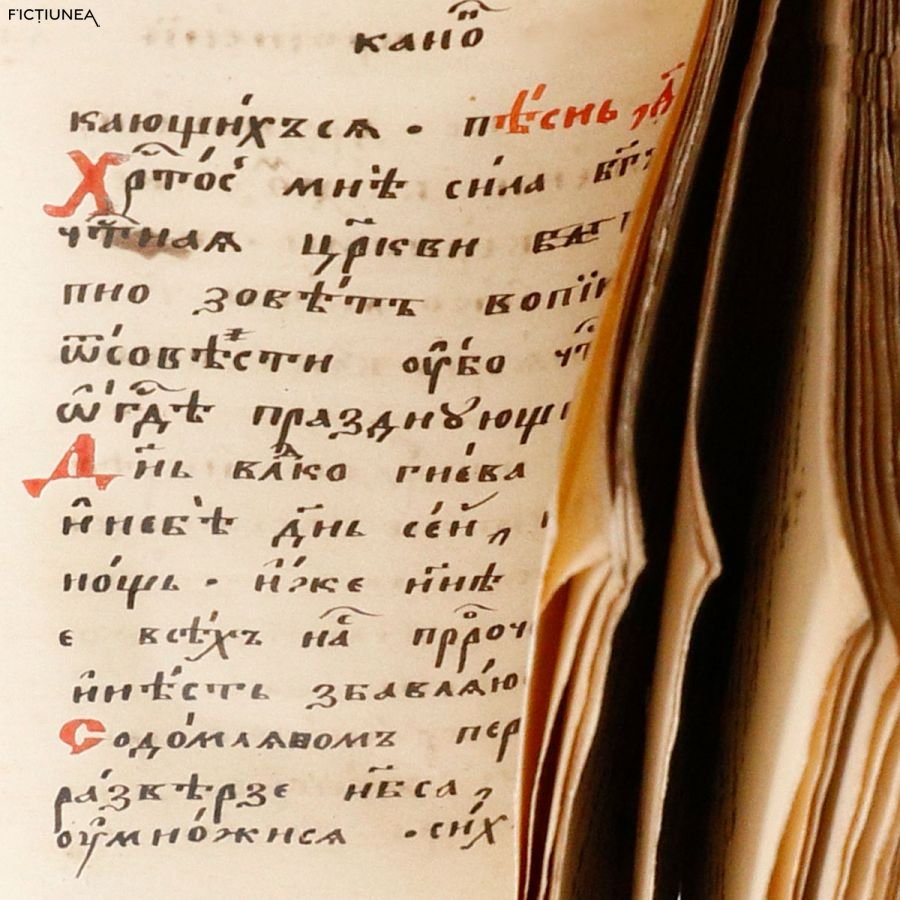 FICȚIUNEA
кано҇
кающи́хъсѧ · пѣ́снь д҃
Хрⷭ҇то́съ мнѣ̀ си́ла
чⷭ҇тнаѧ цр҃кви
пно зовѣ́тъ вопїѝ
ѿсовѣ́сти оу҆́бо
ѡ҆́ гдⷭ҇ѣ празднꙋ́ющи
Дн҃ь влⷣко гнѣ́ва
и҆ небѣ̀ дн҃ь се́й,
но́щь · и҆́же нн҃ѣ
е всѣ́хъ на́съ прⷪ҇ро
и҆нѣ́сть збавлѧ́ю
Содо́млѧномъ пер
ра́звѣрзе нб҃са,
оу҆мно́жисѧ · си́х